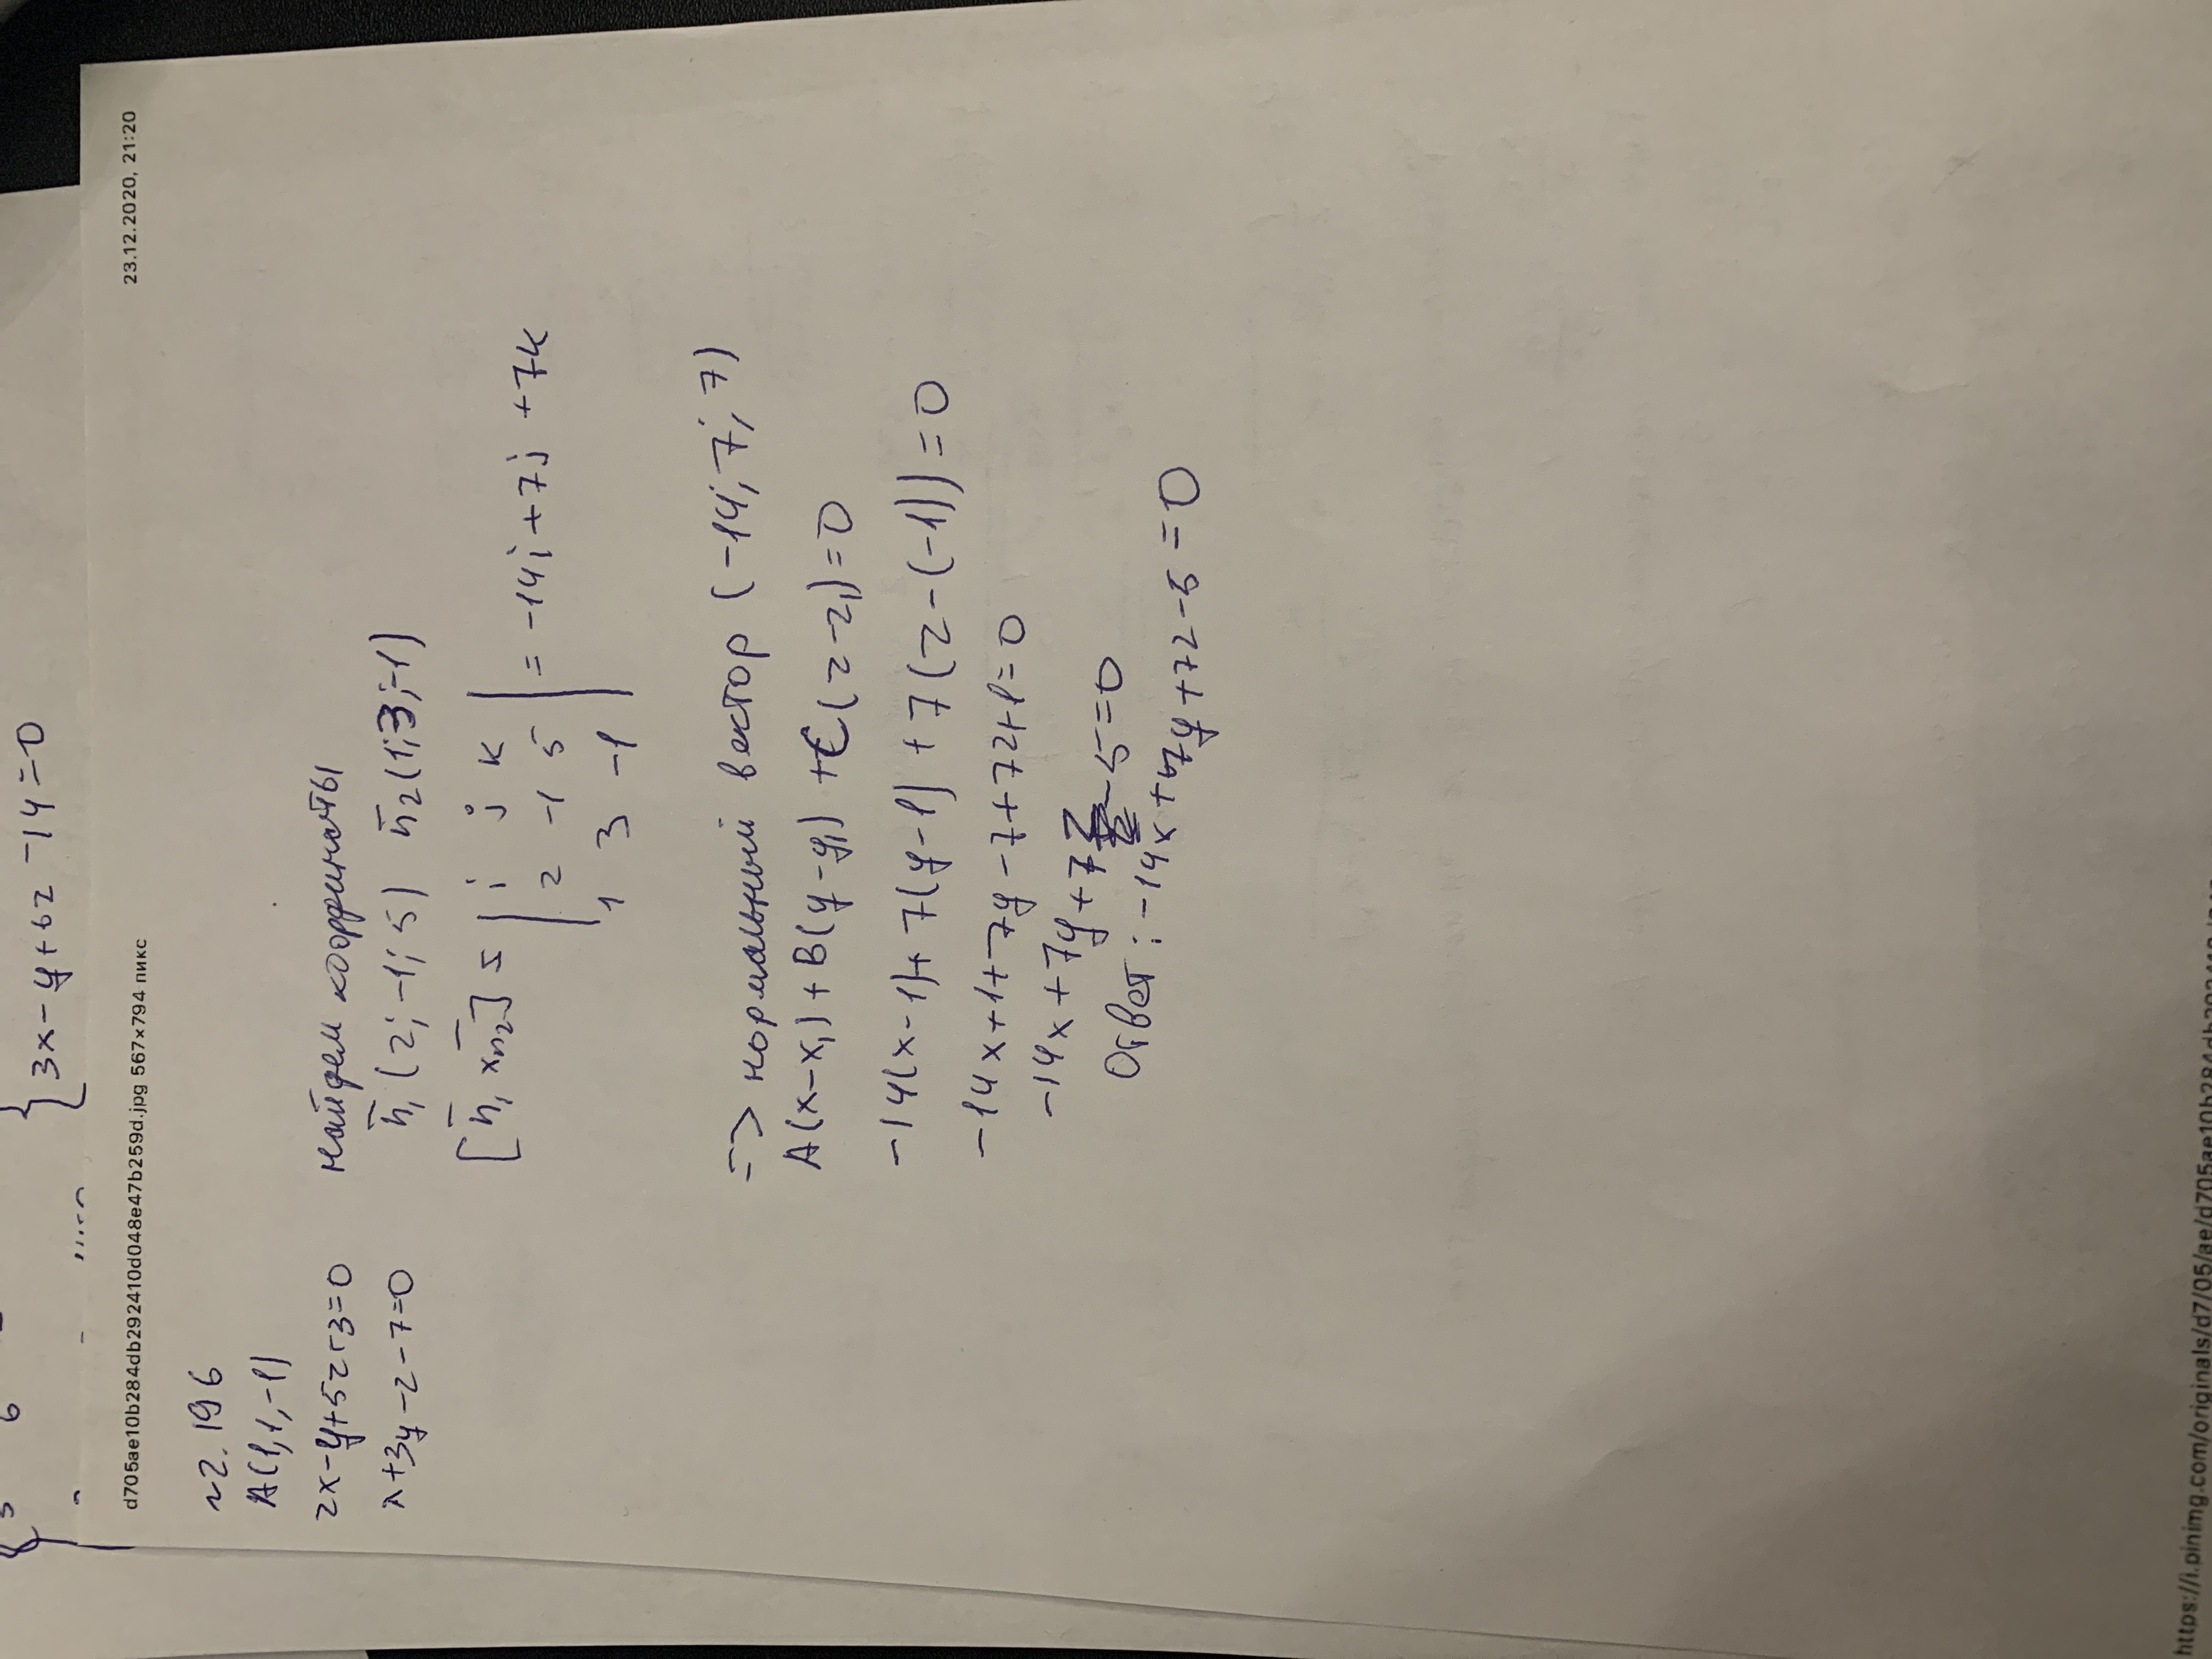 3 6
3x-y+6z-14=0
d705ae10b284db292410d048e47b259d.jpg 567×794 пикс
23.12.2020, 21:20
~2.196
A(1,1,-1)
2x-y+5z+3=0
x+3y-z-7=0
найдем координаты
n̄₁(2;-1;5) n̄₂(1;3;-1)
[n̄₁ x n̄₂] = | i j k
2 -1 5
1 3 -1 | = -14i+7j+7k
=> нормальный вектор (-14; 7; 7)
A(x-x₁)+B(y-y₁)+C(z-z₁)=0
-14(x-1)+7(y-1)+7(z-(-1))=0
-14x+1+7y-7+7z+1=0
-14x+7y+7z-5=0
Ответ: -14x+7y+7z-5=0